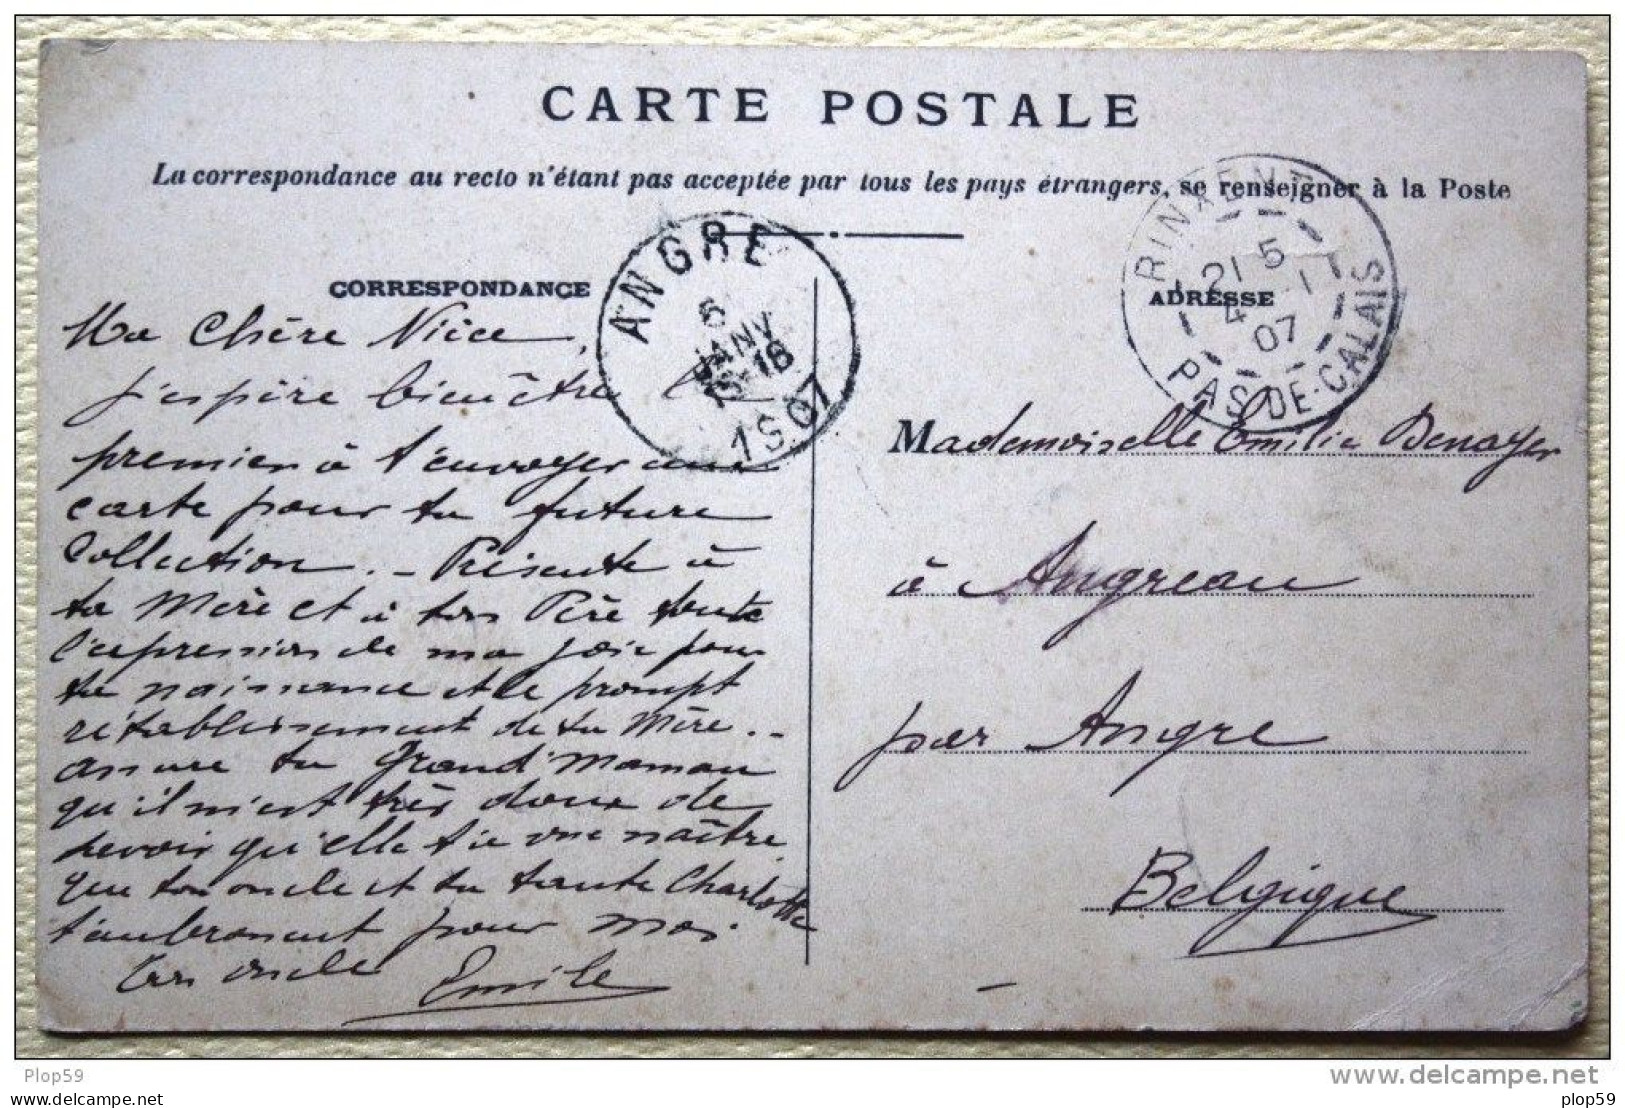 CARTE POSTALE
La correspondance au recto n'étant pas acceptée par tous les pays étrangers, se renseigner à la Poste
CORRESPONDANCE
Ma Chère Nièce,
j'espère bien être le
premier à t'envoyer une
carte pour ta future
Collection. - Présente à
ta Mère et à ton Père toute
l'expression de ma joie pour
ta naissance et le prompt
rétablissement de ta Mère. -
assure ta Grand'Maman
qu'il m'est très doux de
devoir qu'elle t'ie une naître
que ton oncle et ta tante Charlotte
t'embrassent pour moi.
Ton oncle Emile
ANGRE
5
JANV
15-16
1907
RINXENT
21 5
4 - 1
07
PAS-DE-CALAIS
ADRESSE
Mademoiselle Emilie Denayer
à Angreau
par Angre
Belgique
www.delcampe.net
Plop59
plop59